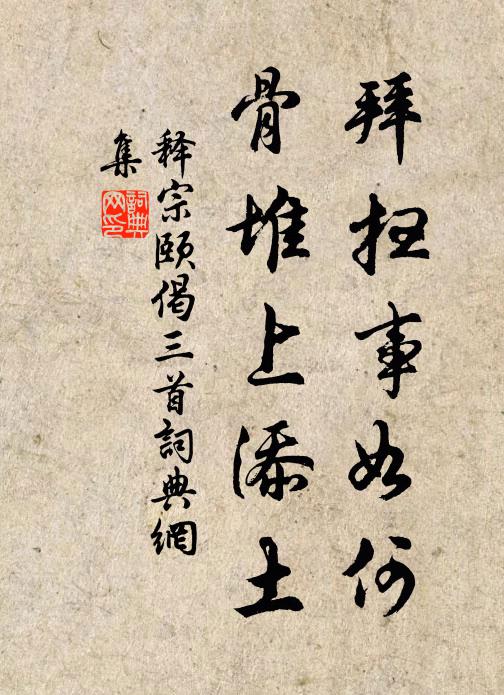 拜扫事如何
骨堆上添土
释宗颐偈三首詞典網
集
詞典网印